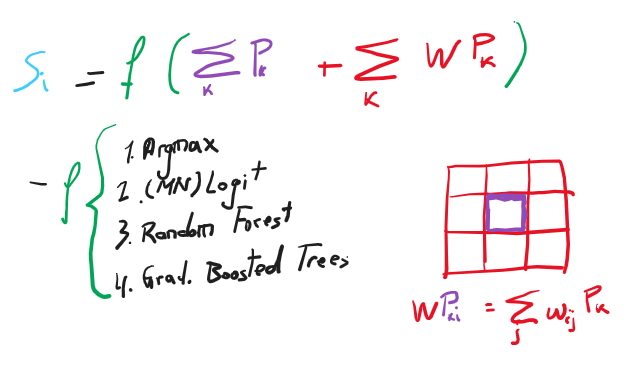 Si = f ( ∑K Pk + ∑K W Pk )
- f { 1. Argmax
2. (MN) Logit
3. Random Forest
4. Grad. Boosted Trees
WPki = ∑j wij Pk